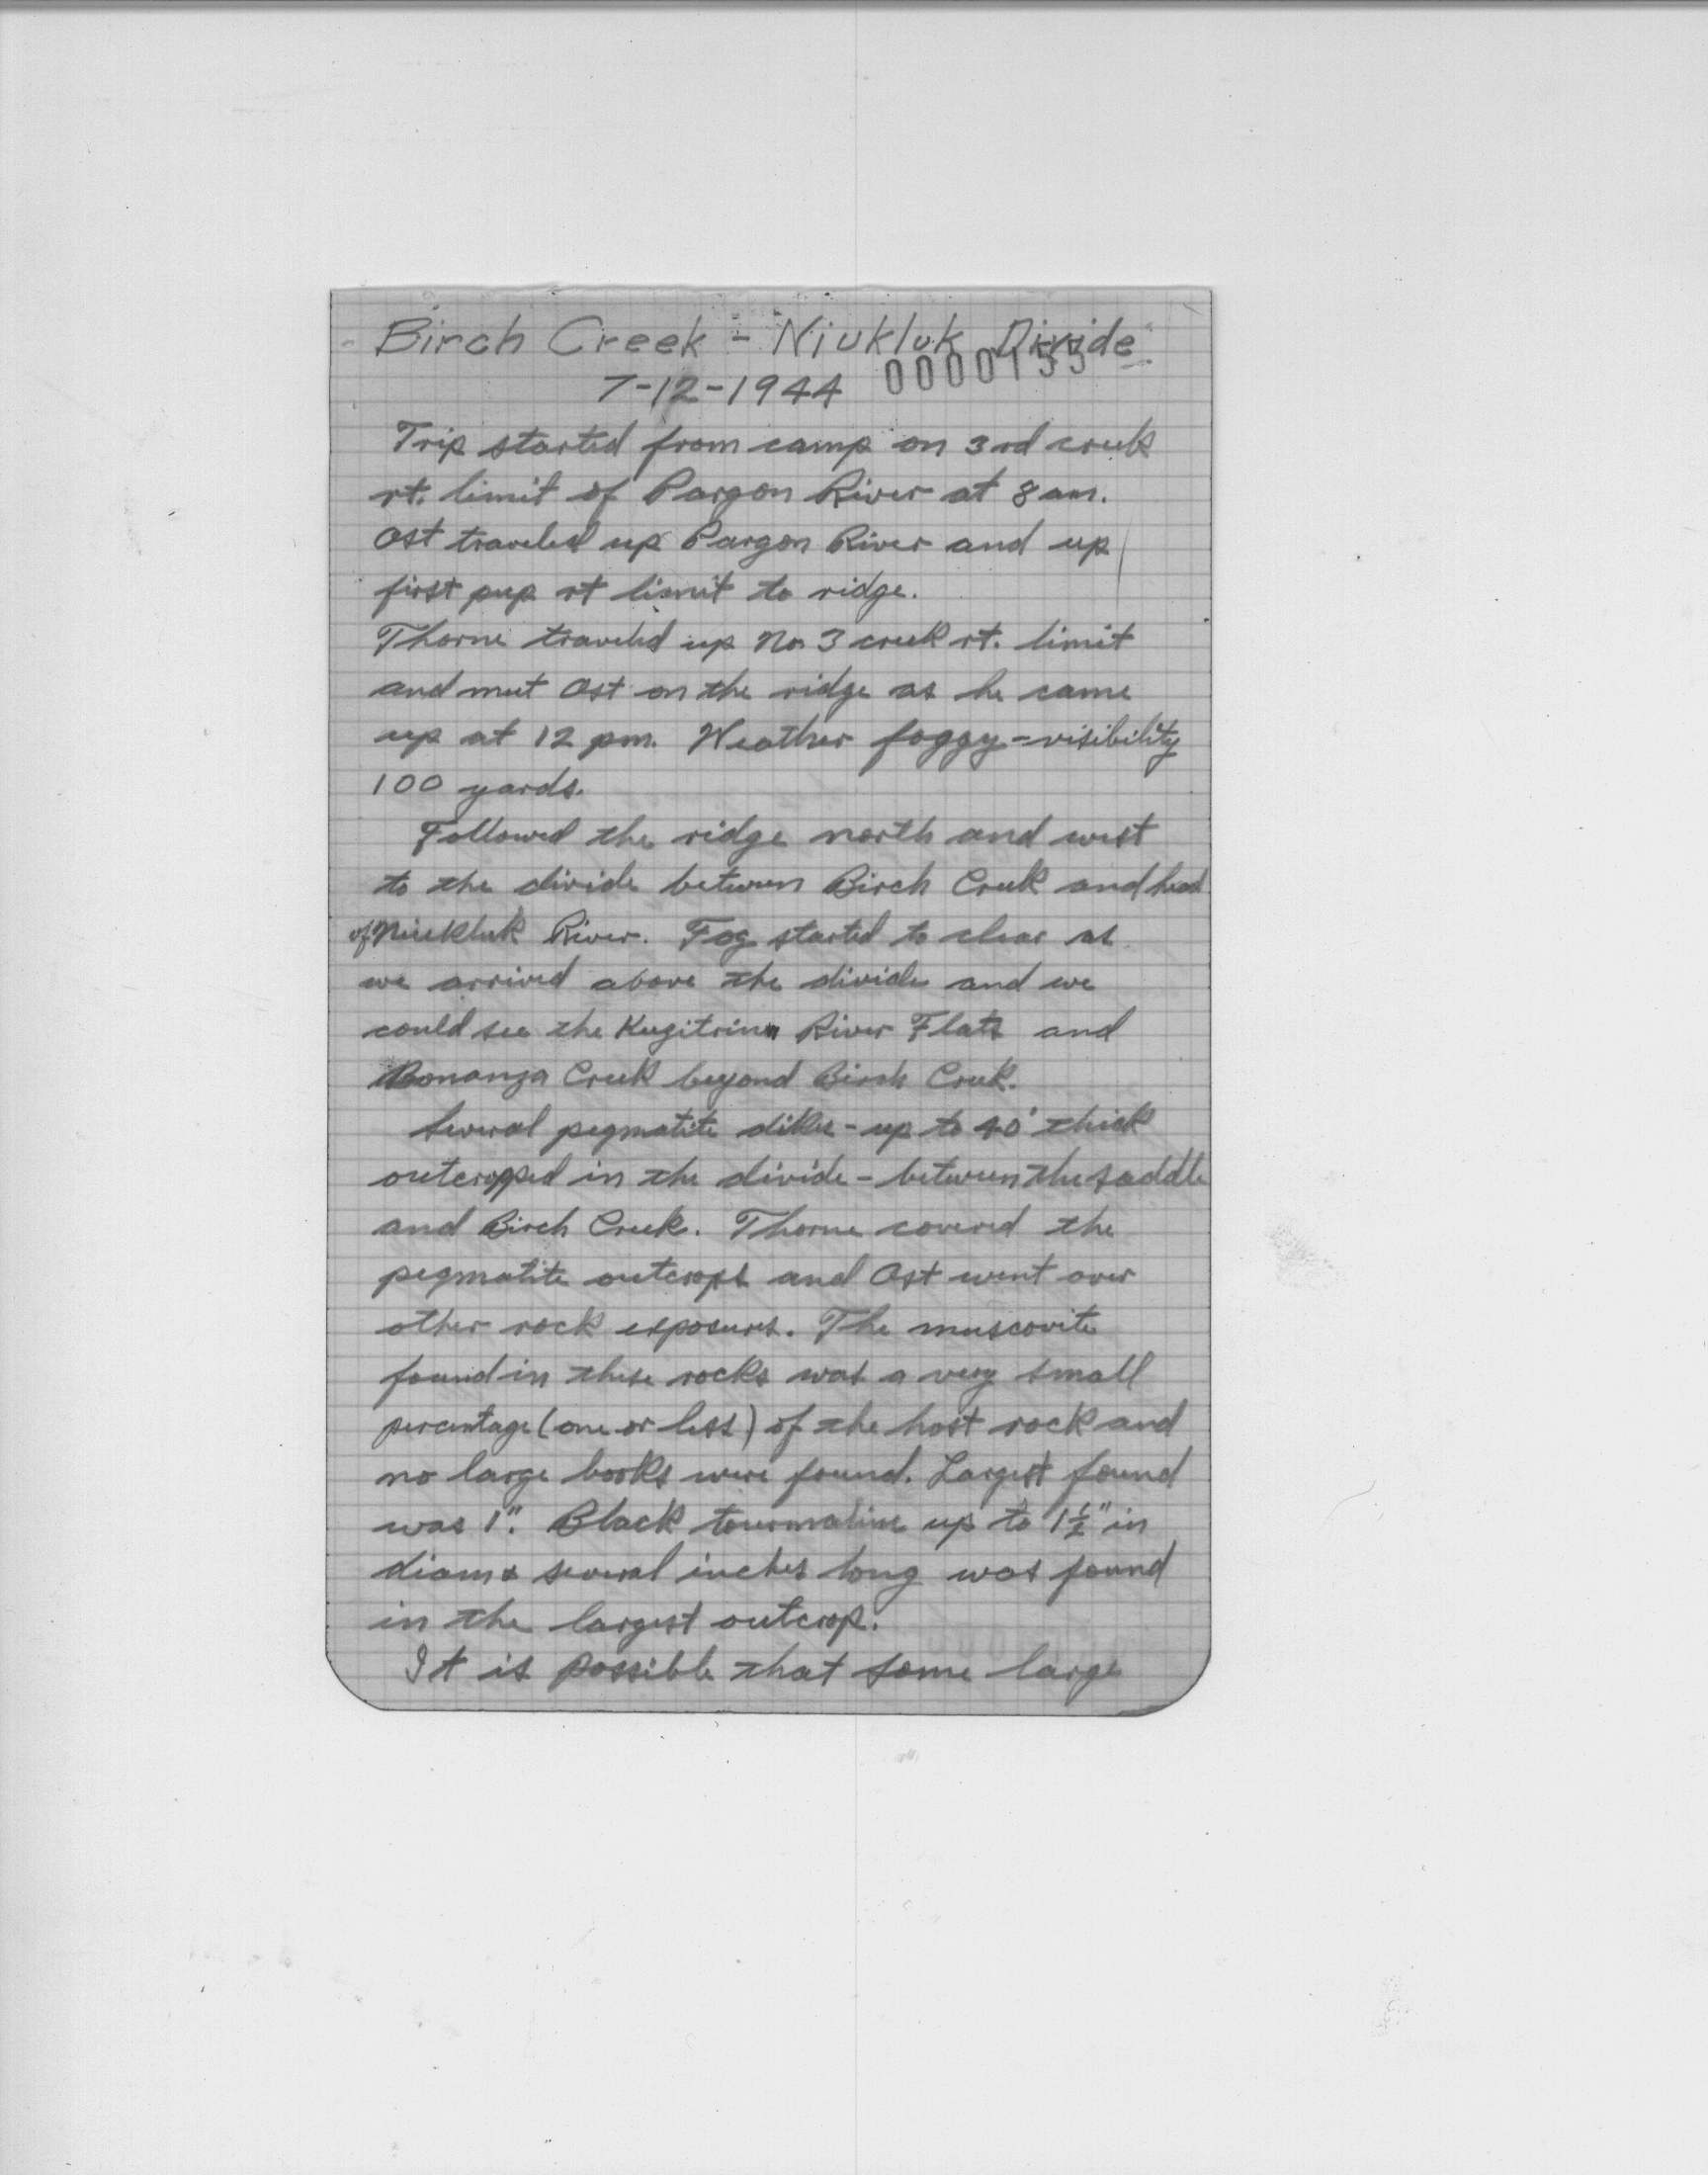 Birch Creek - Niukluk Divide
0000155
7-12-1944
Trip started from camp on 3rd creek
rt. limit of Pargon River at 8 am.
Ost traveled up Pargon River and up
first pup rt limit to ridge.
Thorne traveled up No. 3 creek rt. limit
and meet Ost on the ridge as he came
up at 12 pm. Weather foggy - visibility
100 yards.
Followed the ridge north and west
to the divide between Birch Creek and head
of Niukluk River. Fog started to clear as
we arrived above the divide and we
could see the Kugitrin River Flats and
Bonanza Creek beyond Birch Creek.
Several pegmatite dikes - up to 40' thick
outcropped in the divide - between the saddle
and Birch Creek. Thorne covered the
pegmatite outcrops and Ost went over
other rock exposures. The muscovite
found in these rocks was a very small
percentage (one or less) of the host rock and
no large books were found. Largest found
was 1". Black tourmaline up to 1½" in
diam & several inches long was found
in the largest outcrop.
It is possible that some large